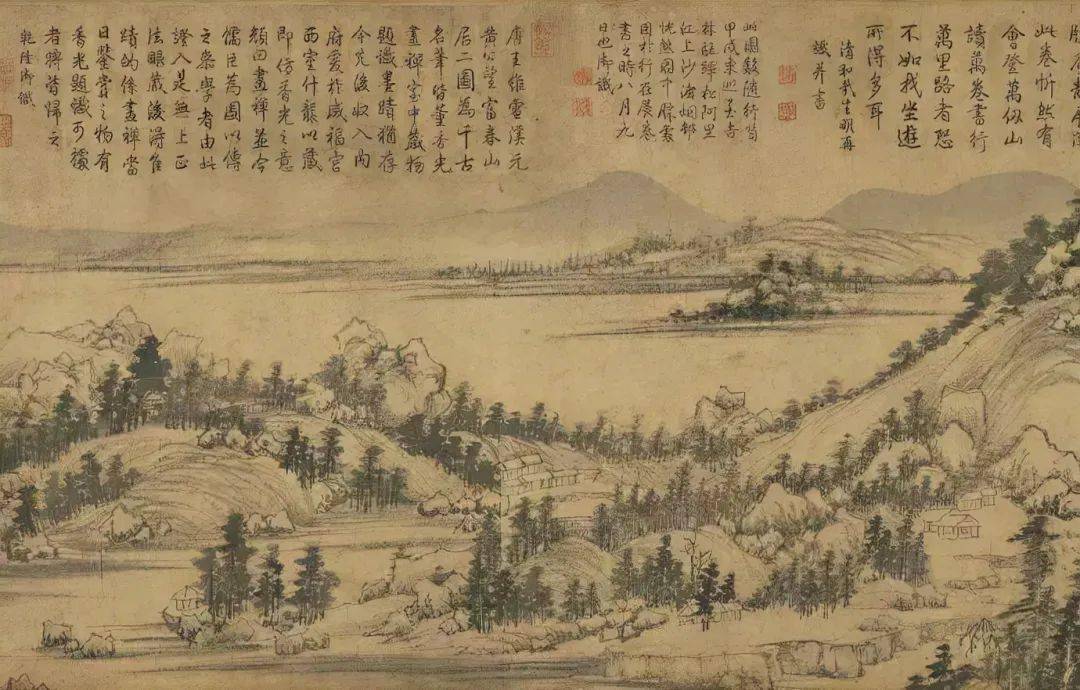 此卷忻然有
會登萬仭山
讀萬卷書行
萬里路者恐
不如我坐遊
所得多耳
清和哉生明再
識并書
此圖數隨行笥
甲戌東巡至吉
林駐蹕松阿里
江上沙渚烟郊
恍然圖中
因於行在展卷
書之時八月九
日也御識
唐王維雪溪元
黃公望富春山
居二圖為千古
名筆皆董香光
畫禪室中藏物
題識墨晴猶存
今先後收入內
府爰於咸福宮
西室什襲以藏
即仿香光之意
顏曰畫禪並令
儒臣為圖以傳
之參學者由此
證入是無上正
法眼藏後得
蹟的係畫禪當
日鑒賞之物有
香光題識可據
者將薈歸之
乾隆御識